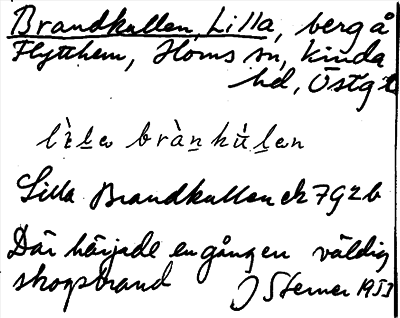 Brandkullen, Lilla, berg å
Flytthem, Horns sn, Kinda
hd, Östgöt
lìle bràn kùlen
Lilla Brandkullen ek 7G2b
Där härjade en gång en väldig
skogsbrand J Sterner 1953